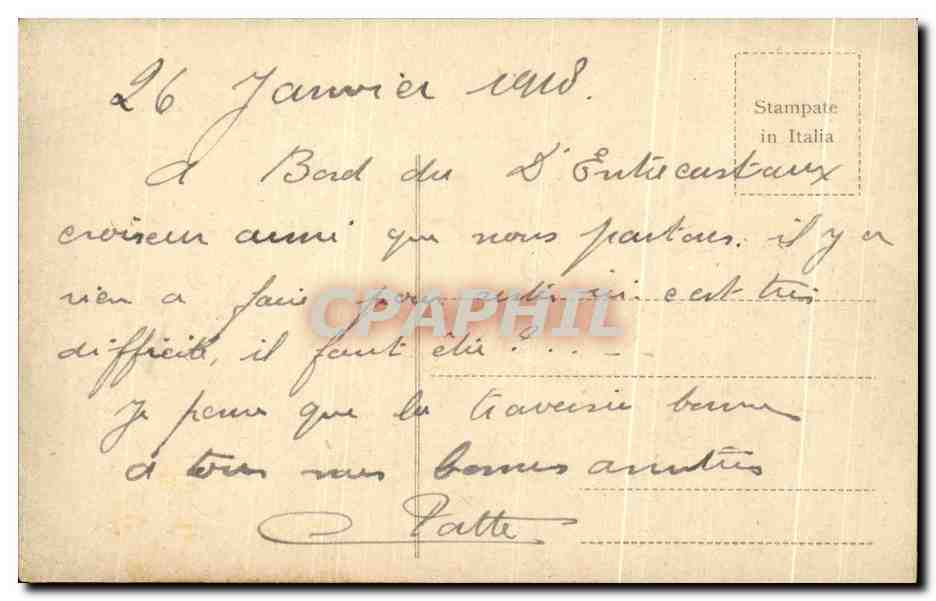 26 Janvier 1918.
Stampate
in Italia
A Bord du D'Entrecastaux
croiseur aussi que nous partons. il y a
rien a faire pour ici c'est très
difficile, il faut être?...
Je pense que la traversée bonne
a tous mes bonnes amitiés
Patte
CPAPHIL